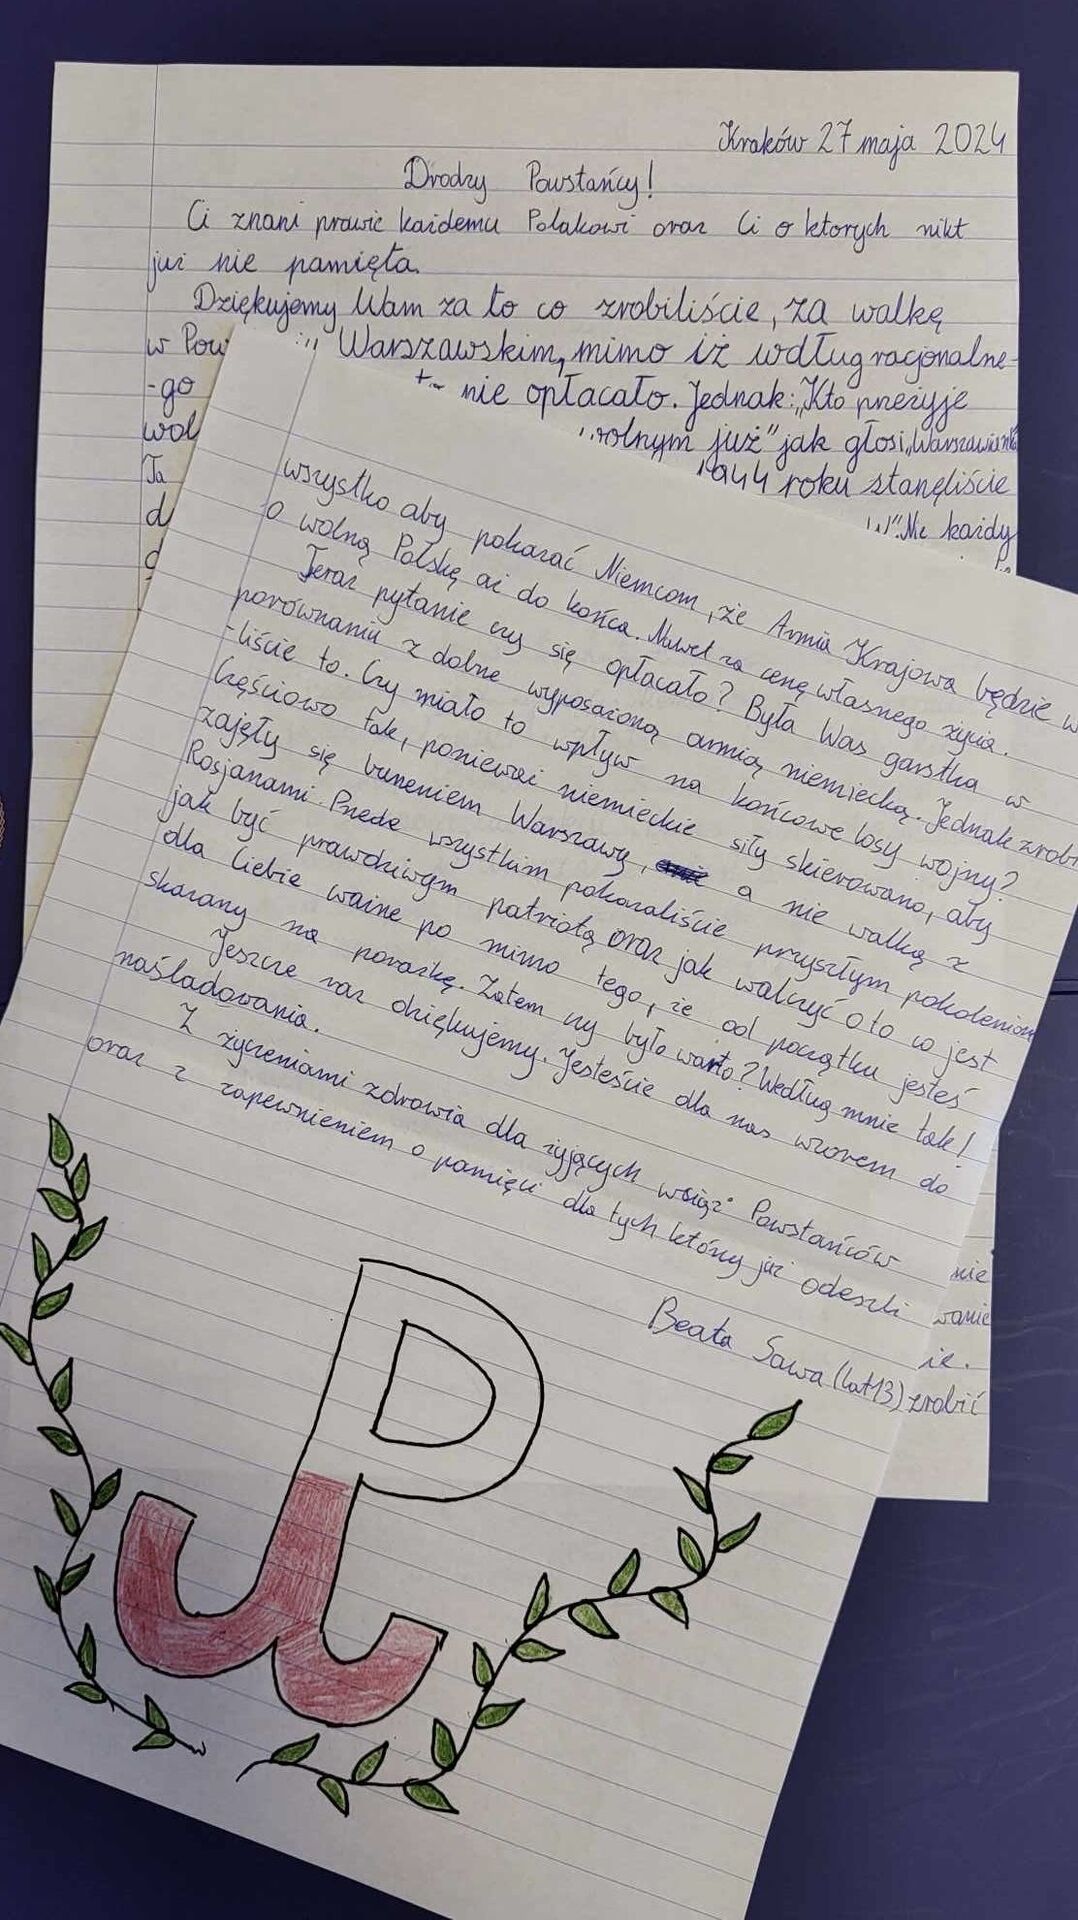 Kraków 27 maja 2024
Drodzy Powstańcy!
Ci znani prawie każdemu Polakowi oraz Ci o ktorych nikt
już nie pamięta.
Dziękujemy Wam za to co zrobiliście, za walkę
w Pow Warszawskim, mimo iż według racjonalne-
-go nie opłacało. Jednak: "Kto przeżyje
wol wolnym już" jak głosi "Warszawianka
Ta 1944 roku stanęliście
d W". Nie każdy
wszystko aby pokazać Niemcom, że Armia Krajowa będzie w
o wolną Polskę aż do końca. Nawet za cenę własnego życia.
Teraz pytanie czy się opłacało? Była Was garstka w
porównaniu z dobrze wyposażoną armią niemiecką. Jednak zrobi
-liście to. Czy miało to wpływ na końcowe losy wojny?
Częściowo tak, ponieważ niemieckie siły skierowano, aby
zajęły się burzeniem Warszawy, a nie walką z
Rosjanami. Przede wszystkim pokazaliście przyszłym pokoleniom
jak być prawdziwym patriotą oraz jak walczyć o to co jest
dla Ciebie ważne po mimo tego, że od początku jesteś
skazany na porażkę. Zatem czy było warto? Według mnie tak!
Jeszcze raz dziękujemy. Jesteście dla nas wzorem do
naśladowania.
Z życzeniami zdrowia dla żyjących wciąż Powstańców
oraz z zapewnieniem o pamięci dla tych którzy już odeszli
Beata Sawa (lat 13)
nie
wanie
ie.
zrobić